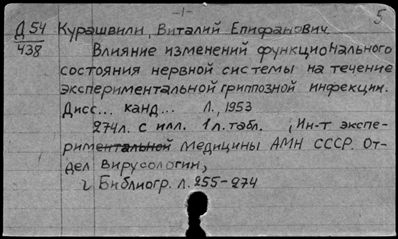 -1-
5
Д54 Курашвили, Виталий Епифанович.
438
Влияние изменений функционального
состояния нервной системы на течение
экспериментальной гриппозной инфекции.
Дисс... канд... Л., 1953
274л. с илл. 1л. табл. (Ин-т экспе-
риментальной медицины АМН СССР. От-
дел Вирусологии)
Библиогр. л. 255-274